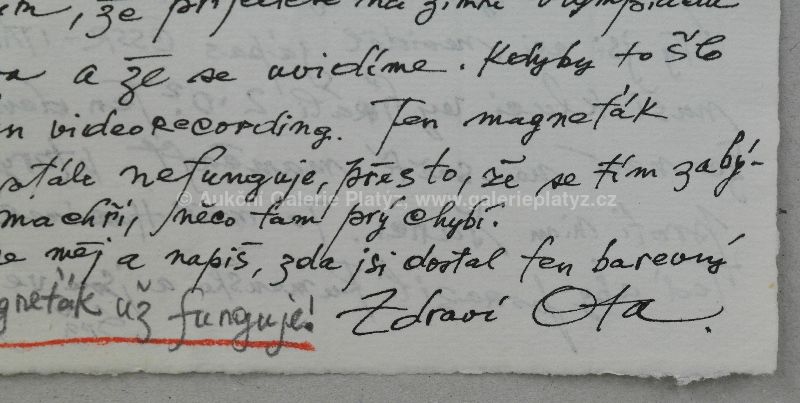 , že přijedete na zimní Olympiádu
a že se uvidíme. Kdyby to šlo
n videorecording. Ten magneťák
stále nefunguje, přesto, že se tím zabý-
© Aukční Galerie Platýz, www.galerieplatyz.cz
machři, něco tam prý chybí.
se měj a napiš, zda jsi dostal ten barevný
gneťák už funguje! Zdraví Ota.